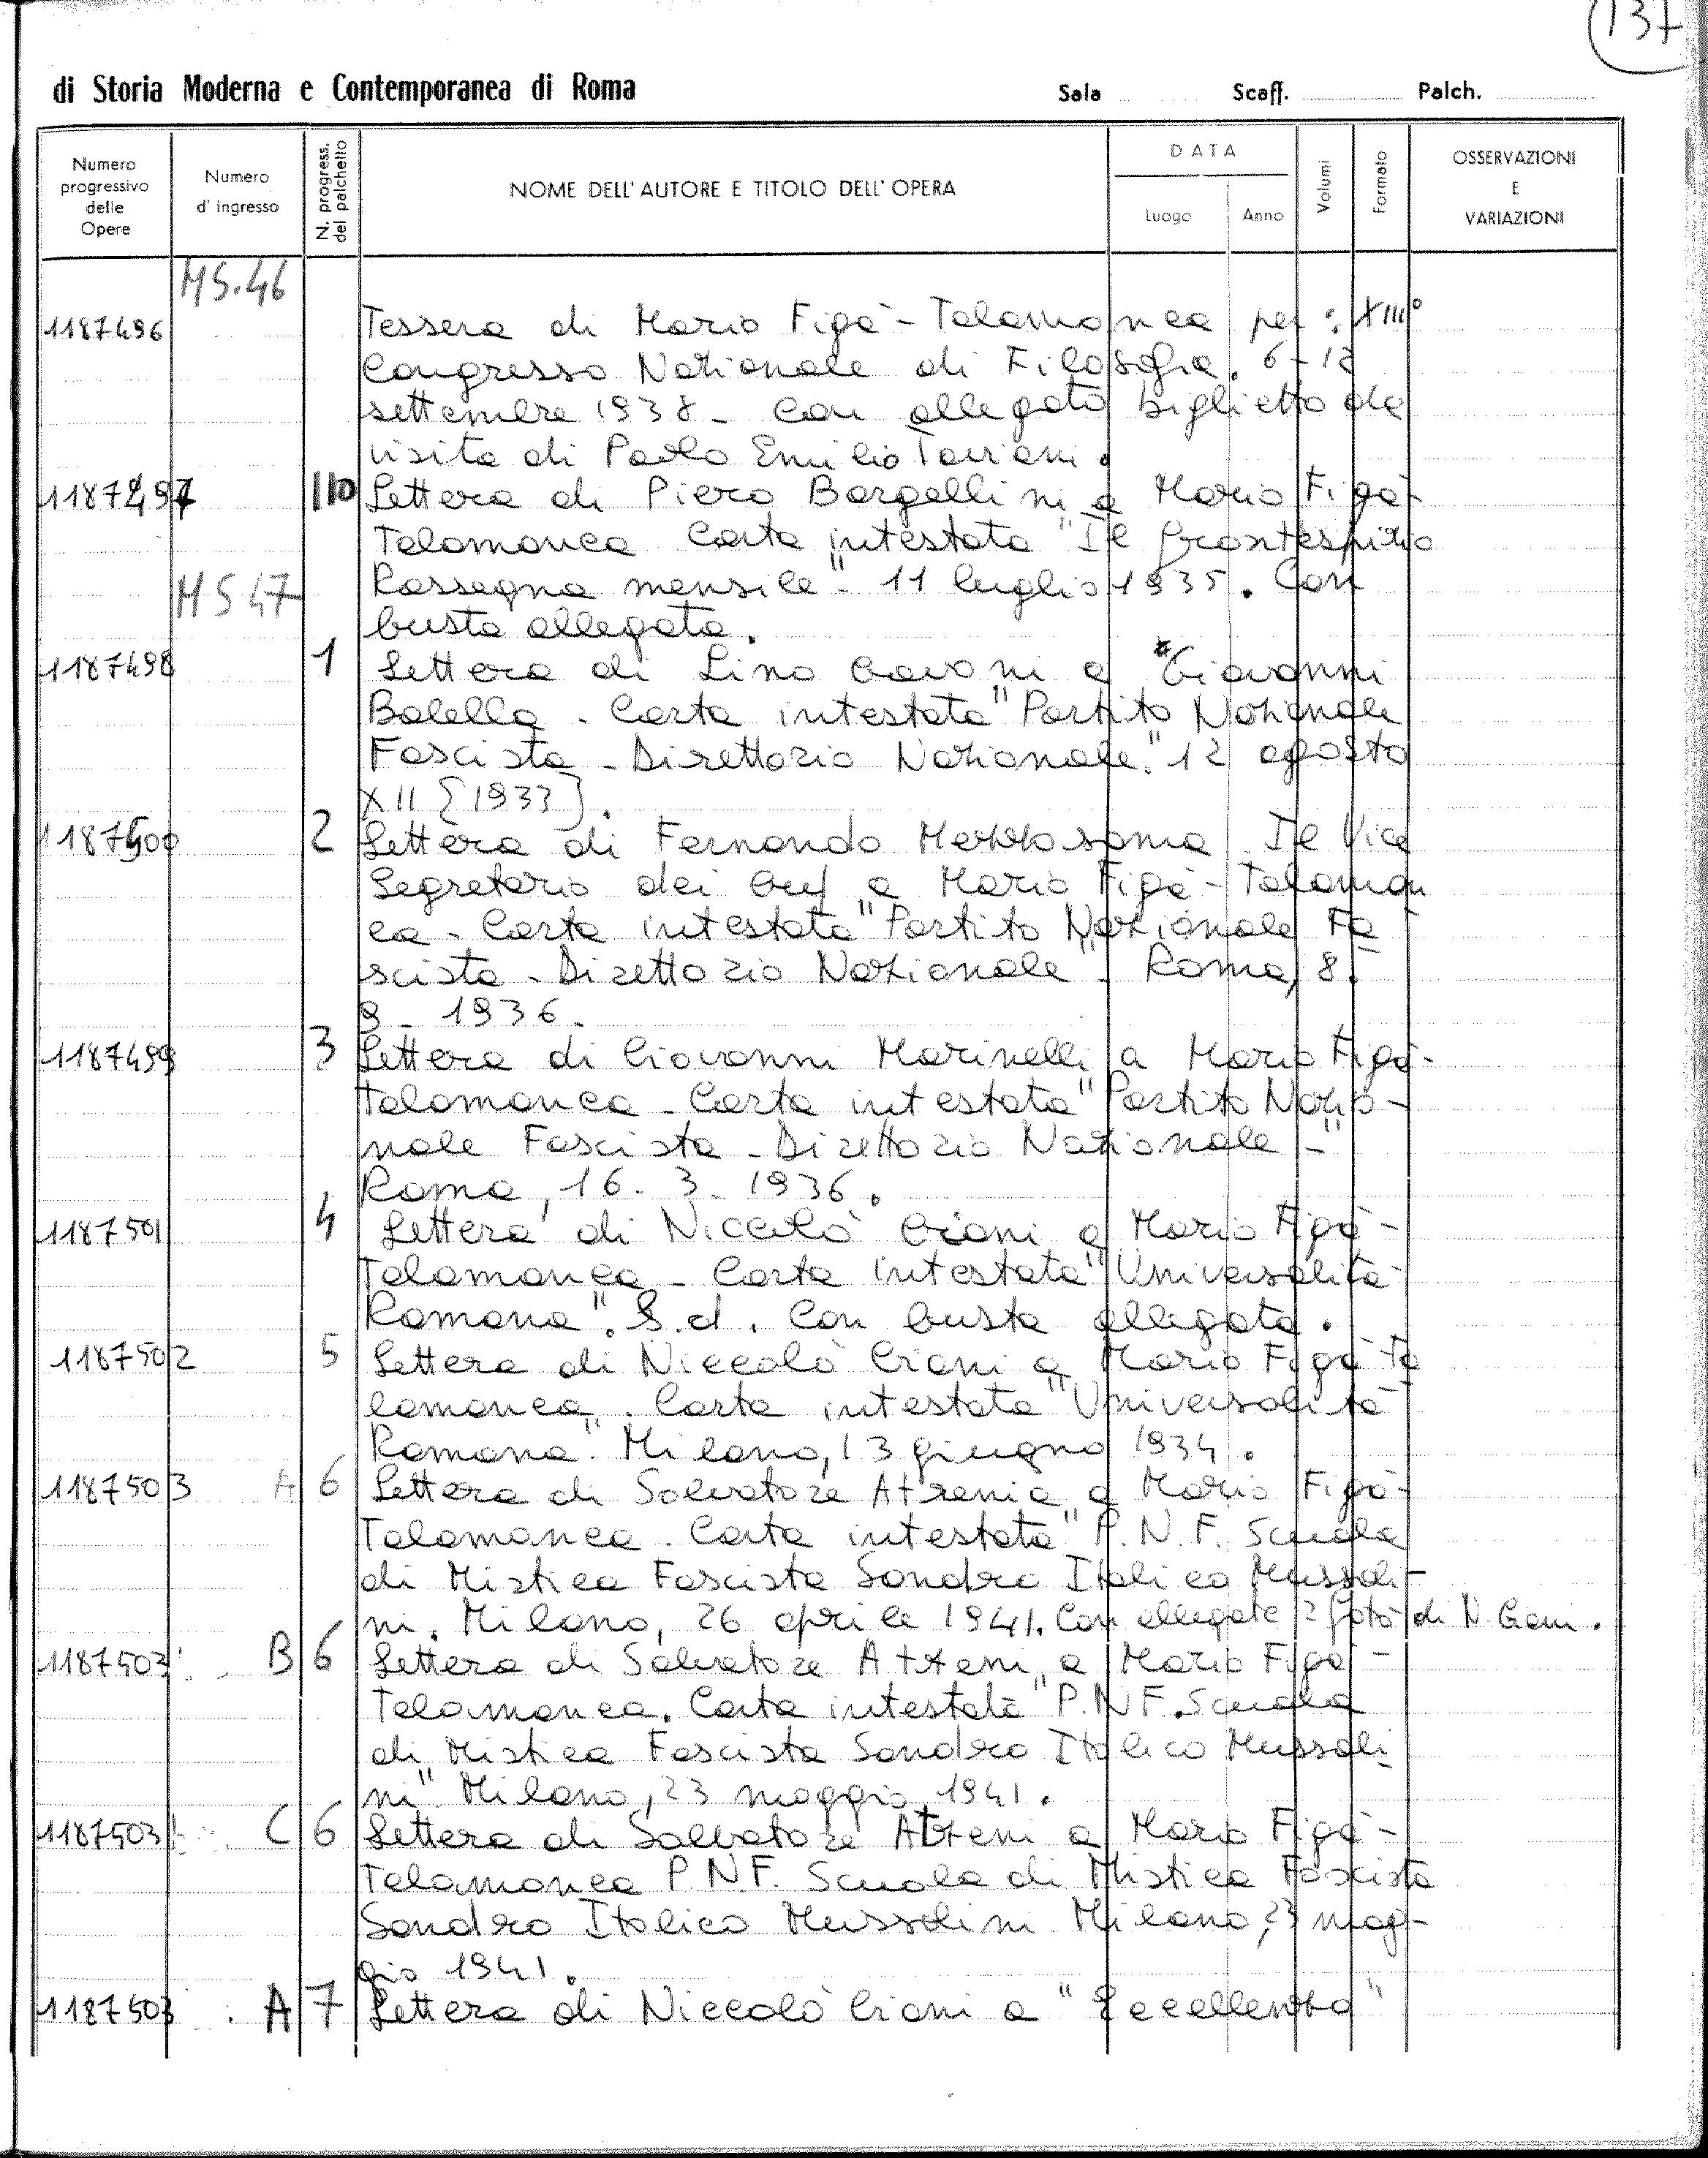 137
di Storia Moderna e Contemporanea di Roma Sala Scaff. Palch.
Numero progressivo delle Opere
Numero d' ingresso
N. progress. del palchetto
NOME DELL' AUTORE E TITOLO DELL' OPERA
DATA
Luogo
Anno
Volumi
Formato
OSSERVAZIONI
E
VARIAZIONI
MS.46
1187496 Tessera di Mario Figà-Talamanca per : XIII°
Congresso Nazionale di Filosofia. 6-12
settembre 1938 - Con allegato biglietto da
visita di Paolo Emilio
1187497 110 Lettera di Piero Bargellini a Mario Figà-
Talamanca Carta intestata "Il frontespizio
Rassegna mensile" - 11 luglio 1935. Con
MS 47
busta allegata.
1187498 1 Lettera di Lino a Giovanni
Balella - Carta intestata "Partito Nazionale
Fascista - Direttorio Nazionale". 12 agosto
XII [1933].
1187500 2 Lettera di Fernando Mezzasoma Il Vice
Segretario dei Guf a Mario Figà-Talaman
ca - Carta intestata "Partito Nazionale Fa
scista - Direttorio Nazionale". Roma, 8.
9 - 1936.
1187499 3 Lettera di Giovanni Marinelli a Mario Figà-
Talamanca - Carta intestata "Partito Nazio-
nale Fascista - Direttorio Nazionale -"
Roma, 16. 3. 1936.
1187501 4 Lettera di Niccolò Giani a Mario Figà-
Talamanca - Carta intestata "Universalità
Romana". S.d. Con busta allegata.
1187502 5 Lettera di Niccolò Giani a Mario Figà Ta
lamanca. Carta intestata "Universalità
Romana". Milano, 13 giugno 1934.
1187503 A 6 Lettera di Salvatore Atzenia a Mario Figà-
Talamanca. Carta intestata "P.N.F. Scuola
di Mistica Fascista Sandro Italico Mussoli-
ni. Milano, 26 aprile 1941. Con allegate 2 foto di N. Giani.
1187503 B 6 Lettera di Salvatore Atzeni a Mario Figà-
Talamanca. Carta intestata "P.N.F. Scuola
di Mistica Fascista Sandro Italico Mussoli
ni" Milano, 23 maggio 1941.
1187503 C 6 Lettera di Salvatore Atzeni a Mario Figà-
Talamanca P.N.F. Scuola di Mistica Fascista
Sandro Italico Mussolini Milano, 23 mag-
gio 1941.
1187503 A 7 Lettera di Niccolò Giani a "Eccellenza"